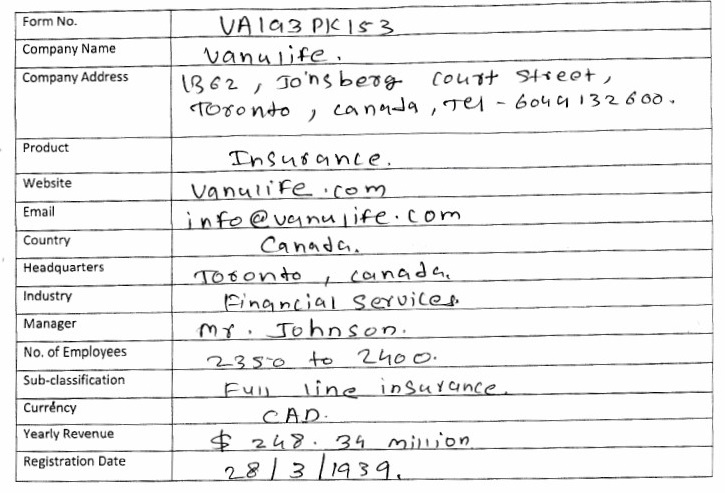 Form No. VA193PK153
Company Name Vanulife.
Company Address 1362, Jo'nsberg Court Street,
Toronto, Canada, Tel - 6049132600.
Product Insurance.
Website Vanulife.com
Email info@vanulife.com
Country Canada.
Headquarters Toronto, Canada.
Industry Financial Services.
Manager Mr. Johnson.
No. of Employees 2350 to 2400.
Sub-classification Full line insurance.
Currency CAD.
Yearly Revenue $ 248.34 million
Registration Date 28/3/1939.